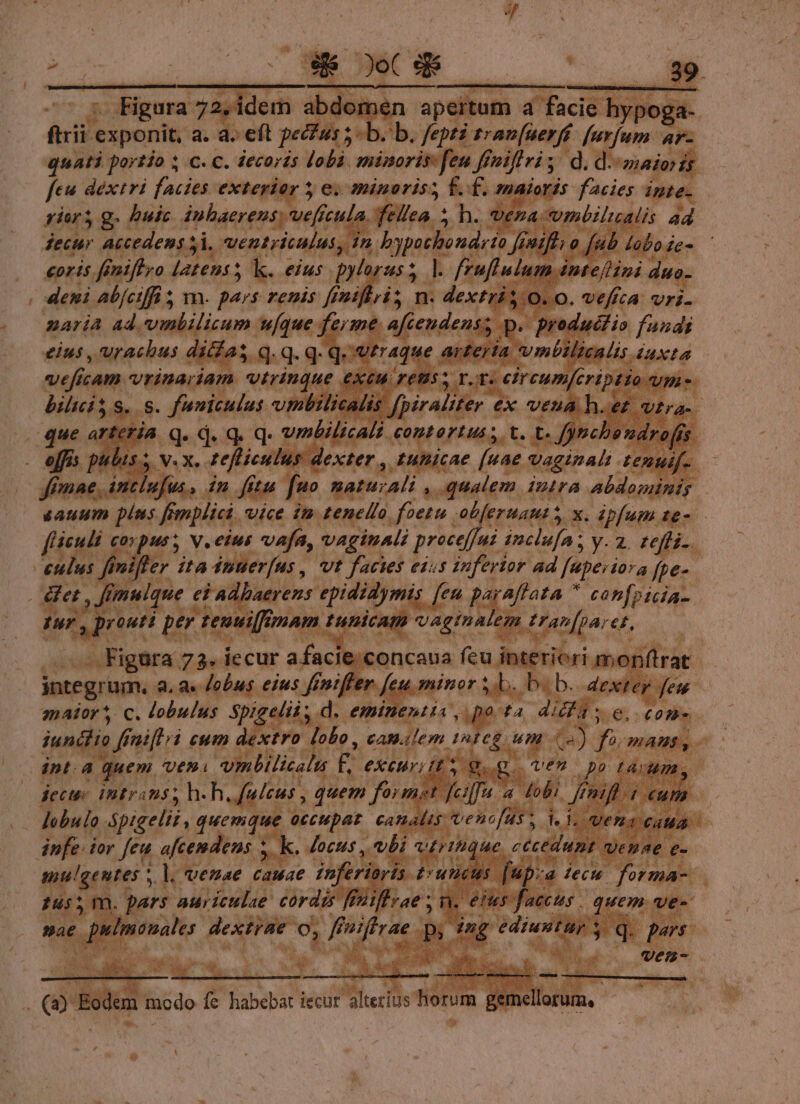 )o( 39
Figura 72, idem abdomen apertum a facie hypoga-
ſtrii exponit, a. a. eſt pectus; b. b. ſepti tranſuerſi ſurſum ar-
quati portio; c. c. iecoris lobi minoris ſeu ſiniſtri; d. d. maioris
ſeu dextri facies exterior; e. minoris; f. f. maioris facies inte-
rior; g. huic inhaerens veſicula fellea; h. vena vmbilicalis ad
iecur accedens; i. ventriculus, in hypochondrio ſiniſtro ſub lobo ie-
coris ſiniſtro latens; k. eius pylorus; l. fruſtulum inteſtini duo-
deni abſciſſi; m. pars renis ſiniſtri; n. dextri; o. o. veſica vri-
naria ad vmbilicum uſque ferme aſcendens; p. productio fundi
eius, vrachus dicta; q. q. q. q. vtraque arteria vmbilicalis iuxta
veſicam vrinariam vtrinque exeuntens; r. r. circumſcriptio vm-
bilici; s. s. funiculus vmbilicalis ſpiraliter ex vena h. et vtra-
que arteria q. q. q. q. vmbilicali contortus; t. t. ſynchondroſis
oſſis pubis; v. x. teſticulus dexter, tunicae ſuae vaginali tenuiſ-
ſimae incluſus, in ſitu ſuo naturali, qualem intra abdominis
cauum plus ſimplici vice in tenello foetu obſeruaui; x. ipſum te-
ſticuli corpus; v. eius vaſa, vaginali proceſſui incluſa; y. z. teſti-
culus ſiniſter ita inuerſus, vt facies eius inferior ad ſuperiora ſpe-
ctet, ſimulque ei adhaerens epididymis ſeu paraſtata * conſpicia-
tur, prouti per tenuiſſimam tunicam vaginalem tranſparet.
Figura 73. iecur a facie concaua ſeu interiori monſtrat
integrum, a. a. lobus eius ſiniſter ſeu minor; b. b. b. dexter ſeu
maior; c. lobulus Spigelii; d. eminentia, porta dicta; e. con-
iunctio ſiniſtri cum dextro lobo, canalem integrum (a) formans,
intra quem vena vmbilicalis f, excurrit; g. g. vena portarum,
iecur intrans; h. h. ſulcus, quem format ſciſſura lobi ſiniſtri cum
lobulo Spigelii, quemque occupat canalis venoſus; i. i. vena caua
inferior ſeu aſcendens; k. locus, vbi vtrinque accedunt venae e-
mulgentes; l. venae cauae inferioris truncus ſupra iecur forma-
tus; m. pars auriculae cordis ſiniſtrae; n. eius ſaccus, quem ve-
nae pulmonales dextrae o, ſiniſtrae p, ingrediuntur; q. pars
ven-
(a) Eodem modo ſe habebat iecur alterius horum gemellorum.